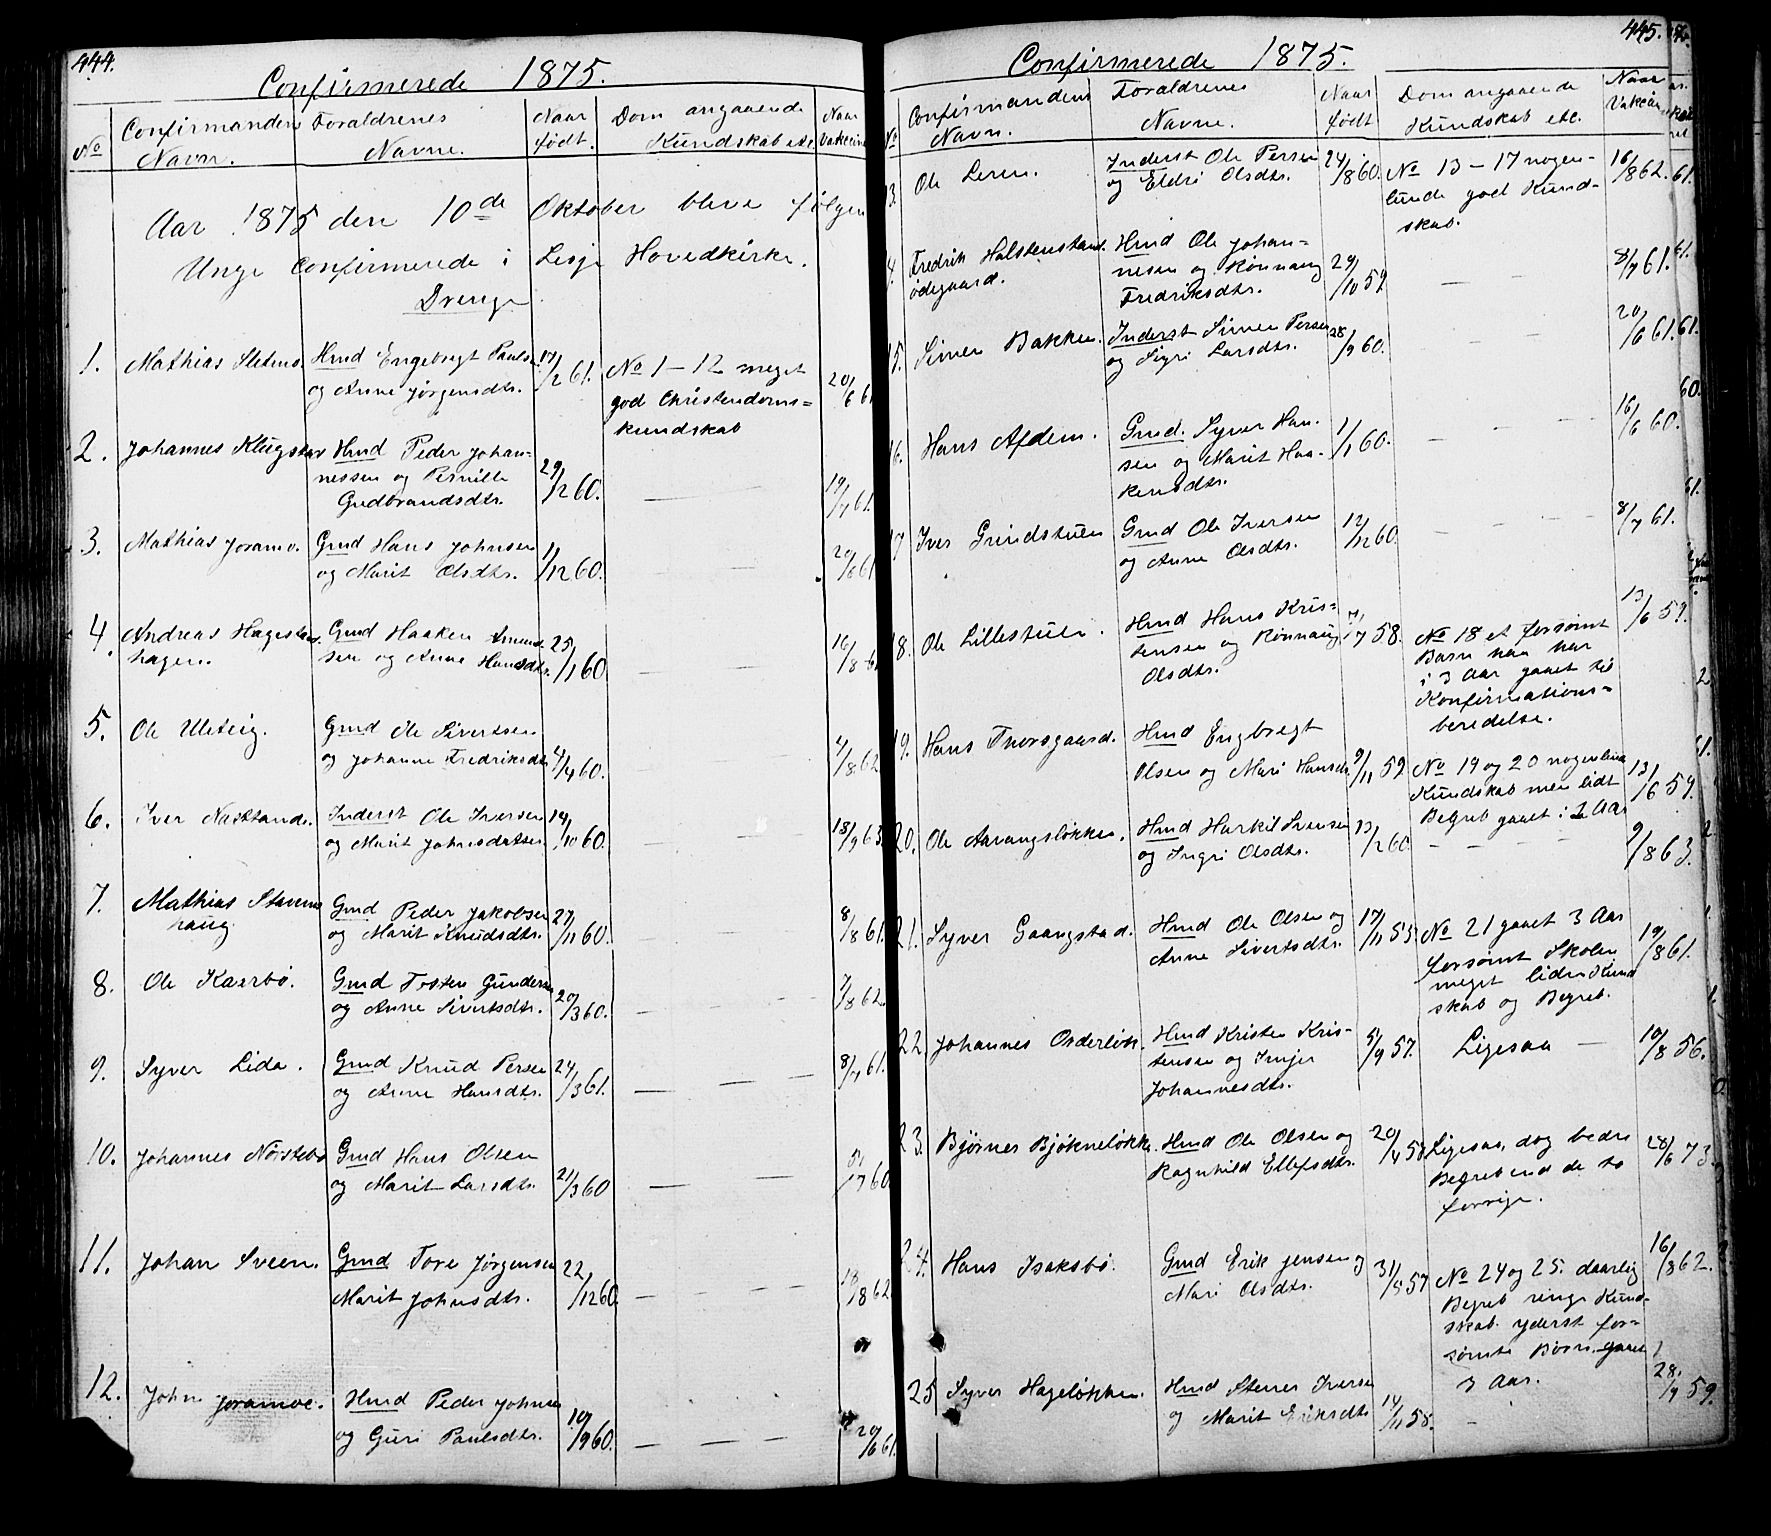 444.
Confirmerede 1875.
No
Confirmandens Navn.
Foraldrenes Navne.
Naar født.
Dom angaaende Kundskab etc.
Naar Vakcin
Aar 1875 den 10de Oktober bleve følgen
Unge Confirmerede i Lesje Hovedkirke.
Drenge
1. Mathias Sletens Hmd Engebregt Pauls 17/2 61. No 1 - 12 meget 20/6 61
og Anne Jørgensdtr. god Christendoms=
kundskab
2. Johannes Klugshav Hmd Peder Johan= 29/12 60. 19/7 61.
nessen og Pernille
Gudbrandsdtr.
3. Mathias Joramo. Gmd Hans Johnsen 1/12 60. 20/6 61
og Marit Olsdtr.
4. Andreas Hagestad Gmd Haaken Amund 25/1 60 16/8
hagen. sen og Anne Hansdtr.
5. Ole Uleteig. Gmd Ole Sivertsen 4/4 60. 7/8 62
og Johanne Fredriksdtr
6. Iver Nastande. Inderst Ole Iversen 14/10 60. 18/9 63.
og Marit Johnsdatter
7. Mathias Stavem Gmd Peder Jakobsen 27/11 60. 8/8 61.
haug. og Marit Knudsdtr.
8. Ole Kaarbø. Gmd Tosten Gunders 20/3 60. 7/8 62.
og Anne Sivertsdtr.
9. Syver Lida. Gmd Knud Persen 24/3 61. 8/7 61.
og Anne Hansdtr.
10. Johannes Nørstebø Gmd Hans Olsen 21/3 60 /7 60
og Marit Larsdtr.
11. Johan Sveen. Gmd Tore Jørgensen 22/12 60. 18/8 62.
Marit Johnsdtr.
12. John Joramoe. Hmd Peder Johnsen 10/9 60. 20/6 61.
og Guri Paulsdtr.
445.
Confirmerede 1875.
No
Confirmandens Navn.
Foraldrenes Navne.
Naar født
Dom angaaende Kundskab etc.
Naar Vakcin
13. Ole Leren. Inderst Ole Persen 24/8 60. No 13 - 17 nogen- 16/8 62. 61.
og Eldri Olsdtr. lunde god Kund-
skab.
4. Fredrik Halstenstad. Hmd Ole Johan= 29/10 59 8/7 61. 61.
ødegaard. nesen og Rønnaug
Fredriksdtr.
15. Simen Bakken. Inderst Simen Persen 28/9 60. 20/6 61. 61.
og Sigri Larsdtr.
60.
16. Hans Afdem. Gmd. Syver Han- 1/1 60. 16/6 60.
sen og Marit Haa-
kensdtr.
61.
17 Iver Grindstuen Gmd Ole Iversen 12/12 60. 8/7 61.
og Anne Olsdtr.
18. Ole Lillestuen. Hmd Hans Kris= /7 58. No 18 et forsømt 13/6 59.
tensen og Rønnaug Barn han har
Olsdtr. i 3 Aar gaaet til
Konfirmations=
beredelse.
2.
19. Hans Thorsgaard. Hmd Engbregt 61.
Olsen og Mari Hansdtr 9/11 59 No 19 og 20 nogenlun 13/6 59.
Kundskab men lidt
Begreb gaaet i 2 Aar
20. Ole Aarangsløkken. Hmd Harkil Iversen 13/2 60. 9/8 63. 2.
og Ingri Olsdtr.
21. Syver Gaangstad. Hmd Ole Olsen og 17/11 55 No 21 gaaet 3 Aar 19/8 61.
Anne Sivertsdtr. forsømt Skolen
meget liden Kund
skab og Begreb.
22 Johannes Orderløk. Hmd Kristen Kris- 5/9 57. Ligesaa 10/8 56.
tensen og Imjer
Johannesdtr.
23. Bjørner Bjøkneløkk. Hmd Ole Olsen og 20/4 58 Ligesaa, dog bedre 28/6 73.
Ragnhild Ellefsdtr. Begreb end de to
forrige.
24. Hans Isaksbø. Gmd Erik Jensen og 31/5 57 No 24 og 25. daarlig 16/8 62.
Mari Olsdtr. Begreb ringe Kund-
skab. yderst for=
sømte Børn. gaaet
3 Aar.
25 Syver Hageløkken. Hmd Stener Iversen 14/11 58. 28/9 59.
og Marit Eriksdtr